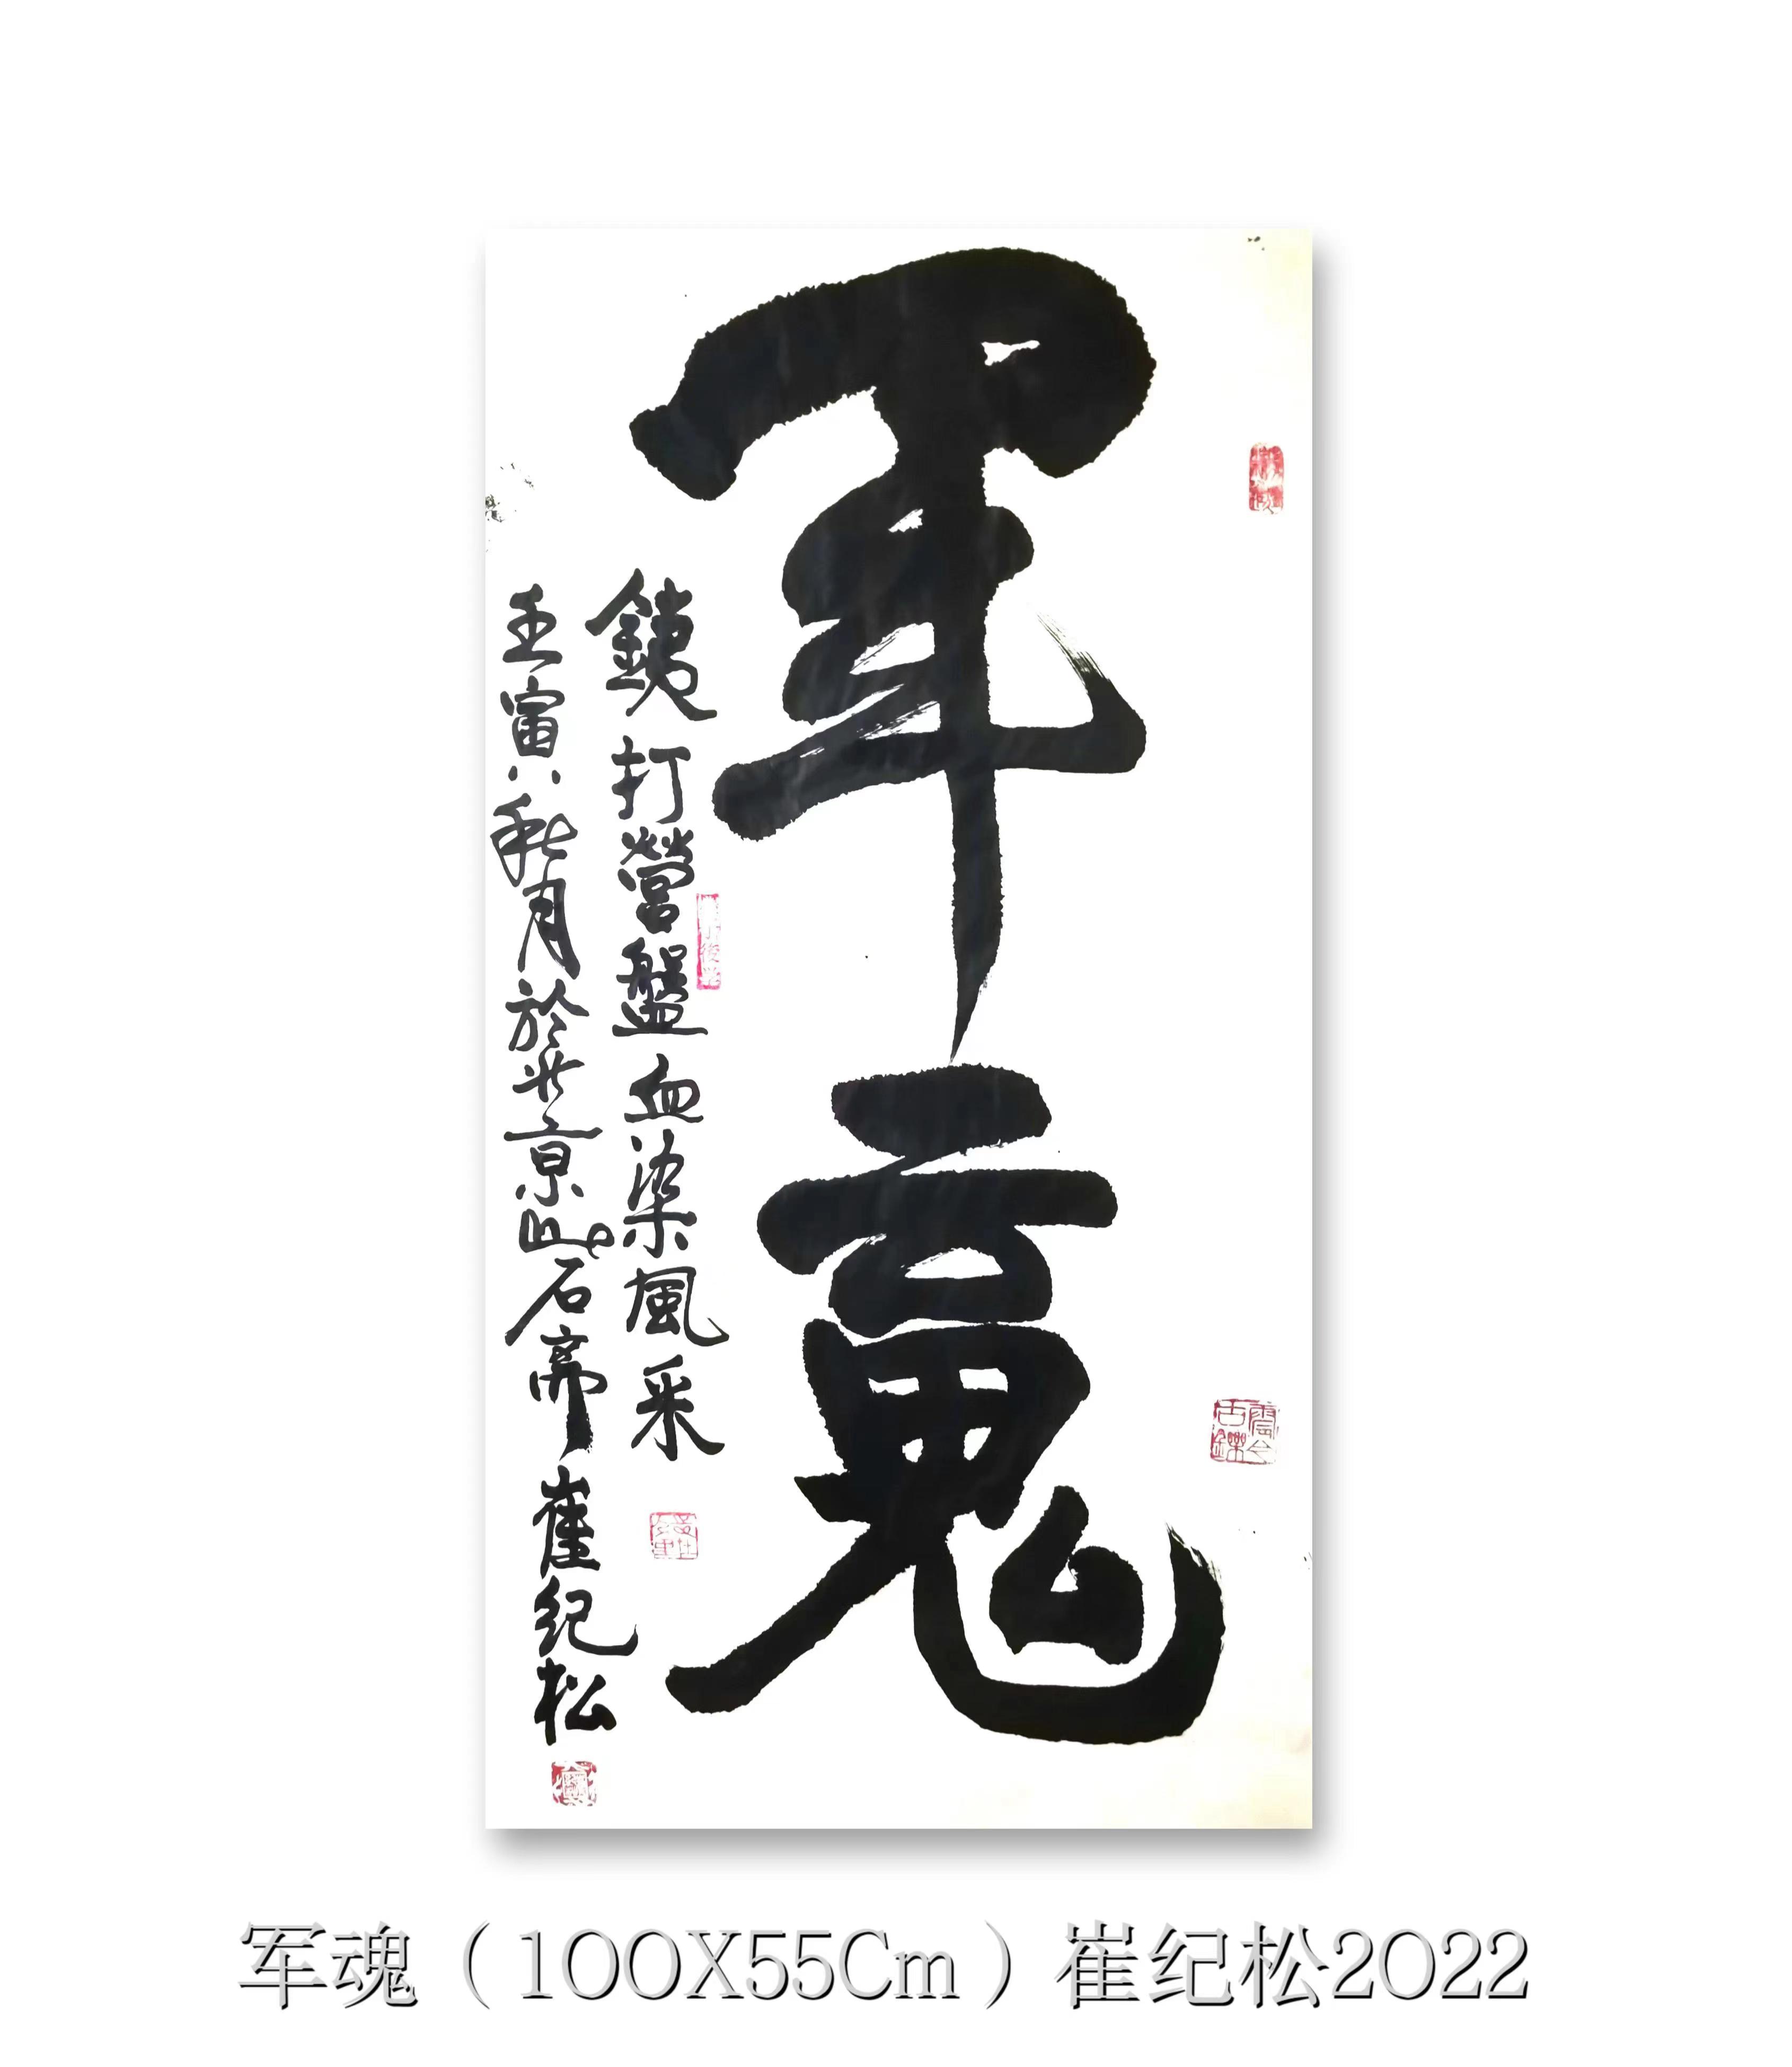 軍魂
銕打營盤血染風采
壬寅八秋月於北京山石齋崔纪松
军魂（100X55Cm）崔纪松2022